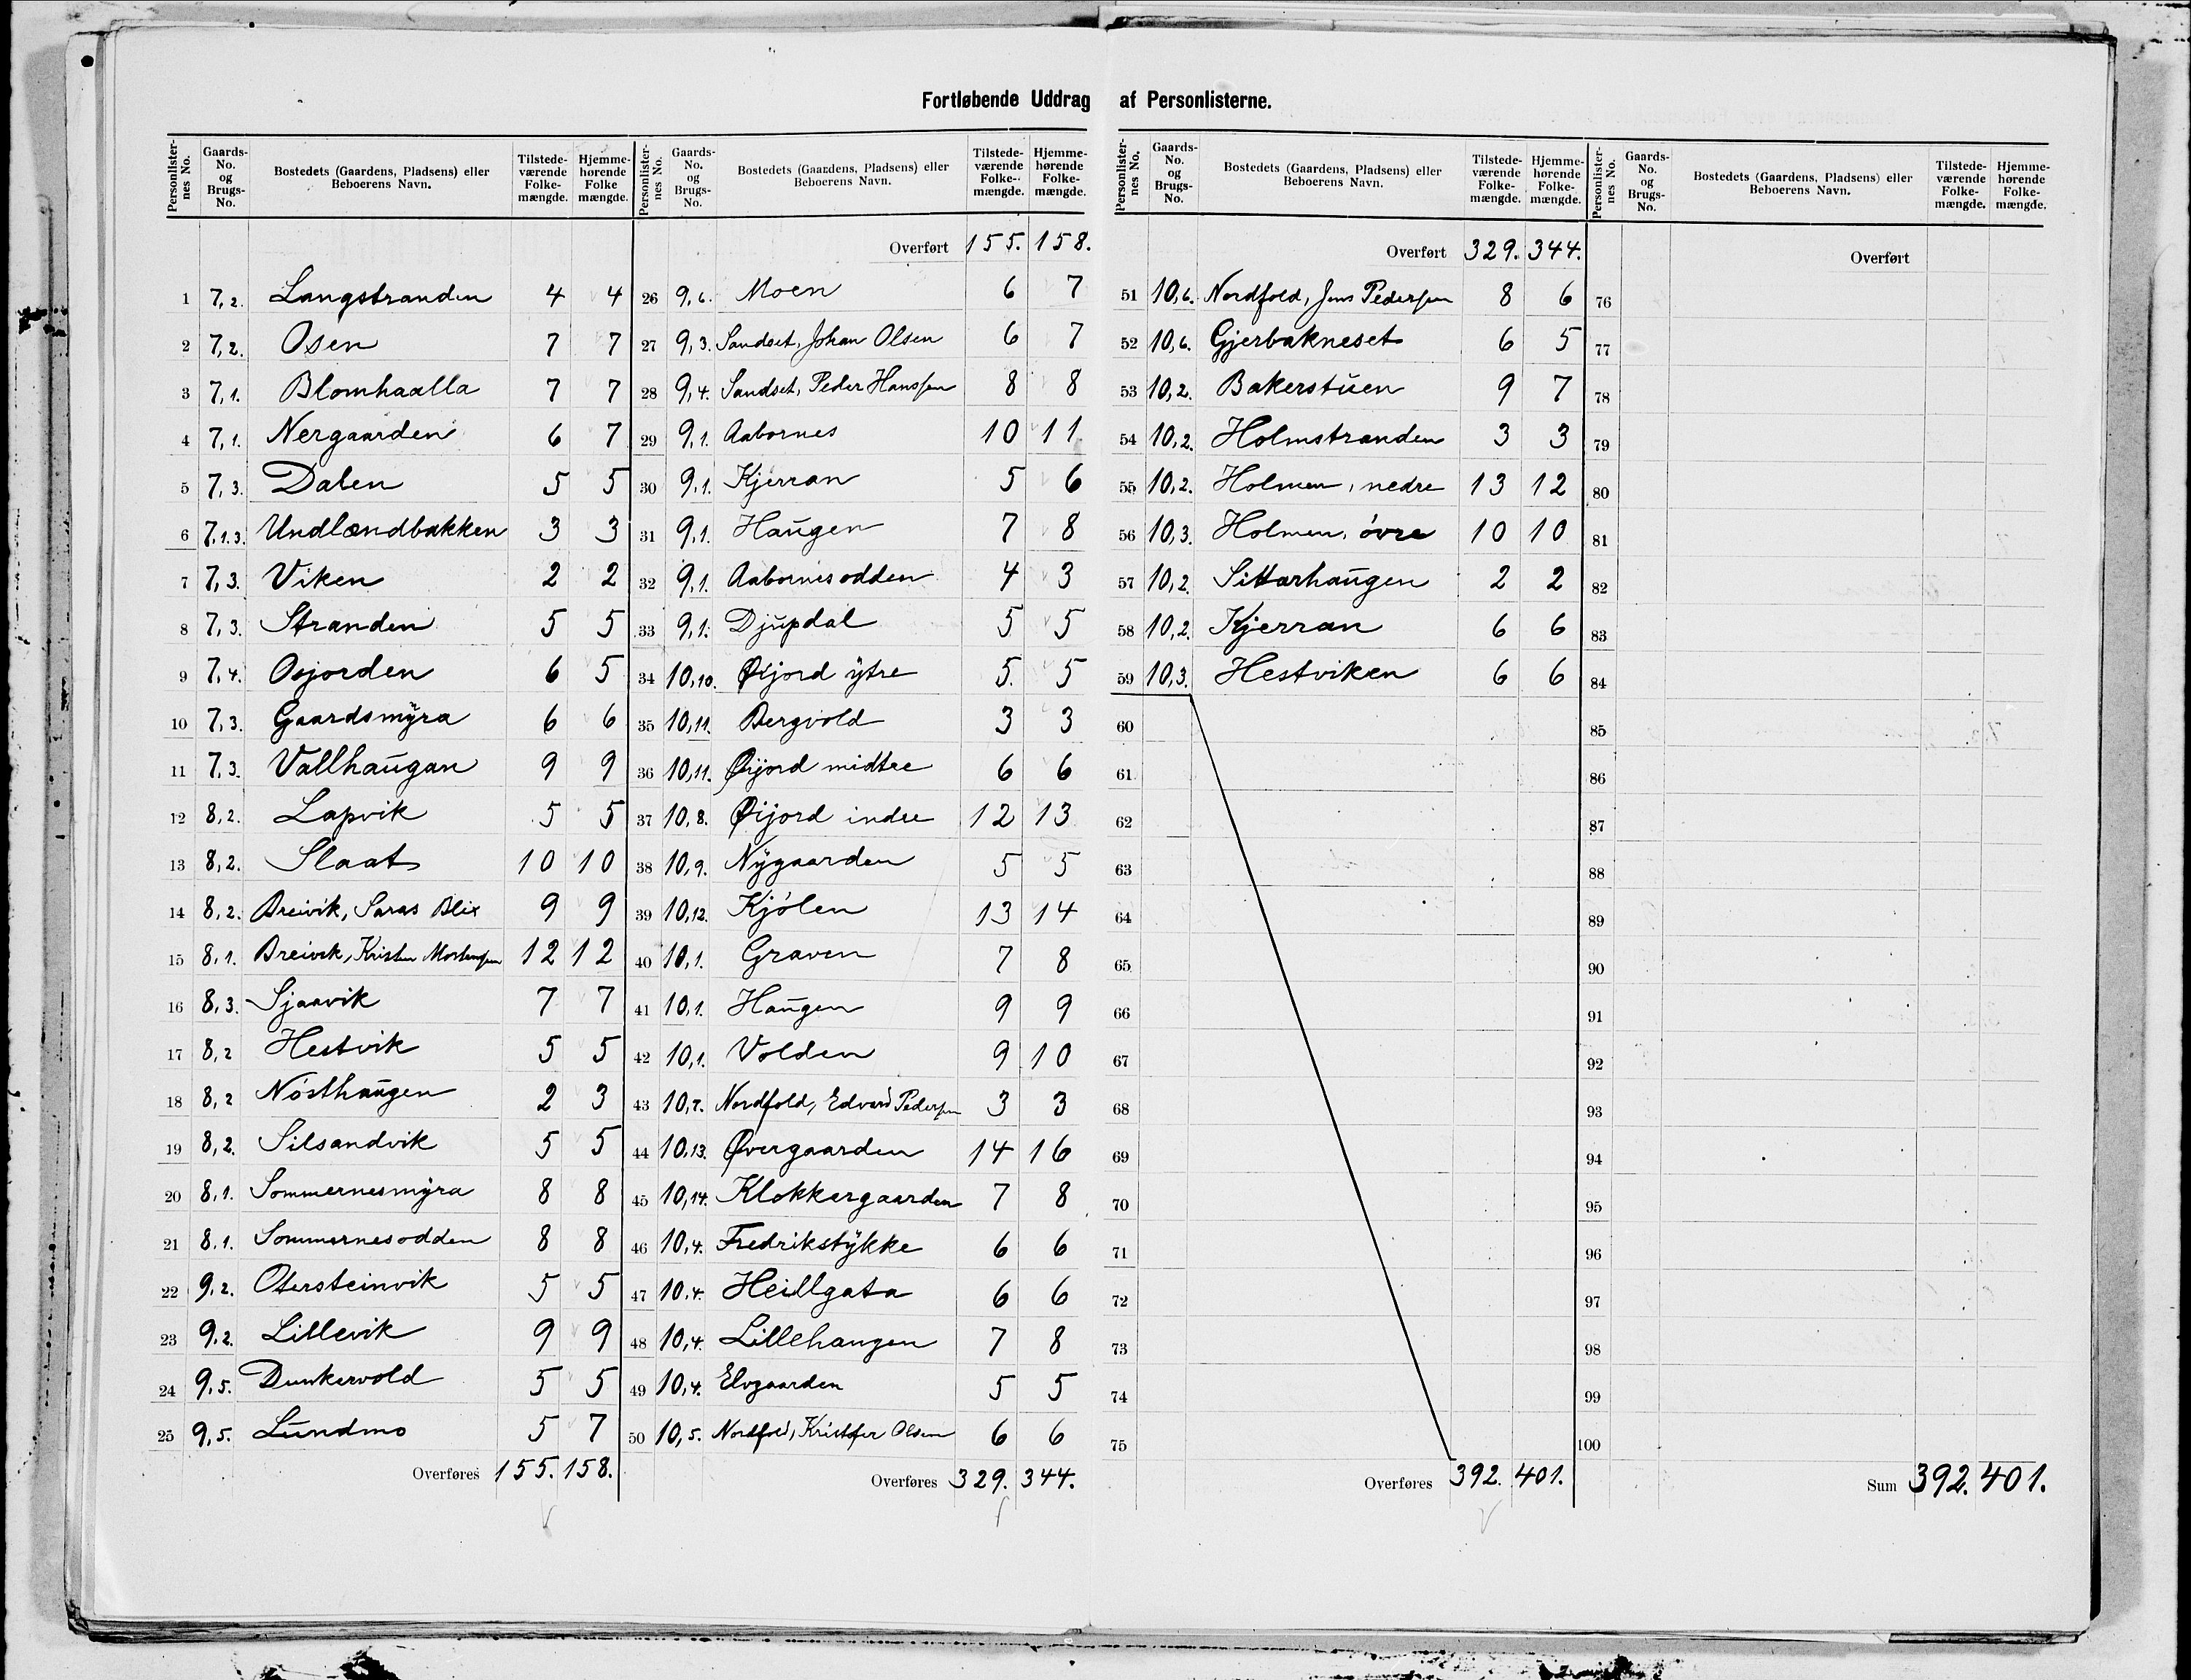 Fortløbende Uddrag af Personlisterne.
Personlister-nes No. Gaards-No. og Brugs-No. Bostedets (Gaardens, Pladsens) eller Beboerens Navn. Tilstede-værende Folke-mængde. Hjemme-hørende Folke mængde.
1 7,2. Langstranden 4 4
2 7,2. Osen 7 7
3 7,1. Blomhaalla 7 7
4 7,1. Nergaarden 6 7
5 7,3. Dalen 5 5
6 7,1.3. Undlændbakken 3 3
7 7,3. Viken 2 2
8 7,3. Stranden 5 5
9 7,4. Osjorden 6 5
10 7,3. Gaardsmyra 6 6
11 7,3. Vallhaugan 9 9
12 8,2. Lapvik 5 5
13 8,2. Slaat 10 10
14 8,2. Breivik, Saras Blix 9 9
15 8,1. Breivik, Kristen Mortensen 12 12
16 8,3. Sjaavik 7 7
17 8,2 Hestvik 5 5
18 8,2 Nósthaugen 2 3
19 8,2. Silsandvik 5 5
20 8,1. Sommernesmyra 8 8
21 8.1. Sommernesodden 8 8
22 9.2. Otersteinvik 5 5
23 9.2. Lillevik 9 9
24 9,5. Dunkervold 5 5
25 9,5. Lundmo 5 7
Overføres 155. 158.
Personlister-nes No. Gaards-No. og Brugs-No. Bostedets (Gaardens, Pladsens) eller Beboerens Navn. Tilstede-værende Folke-mængde. Hjemme-hørende Folke-mængde.
Overført 155. 158.
26 9,6. Moen 6 7
27 9,3. Sandset, Johan Olsen 6 7
28 9,4. Sandset, Peder Hanssen 8 8
29 9,1. Aabornes 10 11
30 9,1. Kjerran 5 6
31 9,1. Haugen 7 8
32 9,1. Aabornesodden 4 3
33 9,1. Djupdal 5 5
34 10,10. Øijord ytre 5. 5
35 10,11. Bergvold 3 3
36 10,11. Øijord midtre 6 6
37 10,8. Øijord indre 12 13
38 10,9. Nygaarden 5 5
39 10,12. Kjólen 13 14
40 10,1. Graven 7 8
41 10,1. Haugen 9 9
42 10,1. Volden 9 10
43 10,7. Nordfold, Edvard Pedersen 3 3
44 10,13. Øvergaarden 14 16
45 10,14. Klokkergaarden 7 8
46 10,4. Fredrikstykke 6 6
47 10,4. Heillgata 6 6
48 10,4. Lillehaugen 7 8
49 10,4. Elvgaarden 5 5
50 10,5. Nordfold, Kristofer Olsen 6 6
Overføres 329. 344.
Personlister-nes No. Gaards-No. og Brugs-No. Bostedets (Gaardens, Pladsens) eller Beboerens Navn. Tilstede-værende Folke-mængde. Hjemme-hørende Folke-mængde.
Overført 329. 344.
51 10,6. Nordfold, Jens Pedersen 8 6
52 10,6. Gjerbakneset 6 5
53 10,2. Bakerstuen 9 7
54 10,2. Holmstranden 3 3
55 10,2. Holmen, nedre 13 12
56 10,3. Holmen, óvre 10 10
57 10,2. Sittarhaugen 2 2
58 10,2. Kjerran 6 6
59 10,3. Hestviken 6 6
60
61
62
63
64
65
66
67
68
69
70
71
72
73
74
75
Overføres 392. 401.
Personlister-nes No. Gaards-No. og Brugs-No. Bostedets (Gaardens, Pladsens) eller Beboerens Navn. Tilstede-værende Folke-mængde. Hjemme-hørende Folke-mængde.
Overført
76
77
78
79
80
81
82
83
84
85
86
87
88
89
90
91
92
93
94
95
96
97
98
99
100
Sum 392. 401.